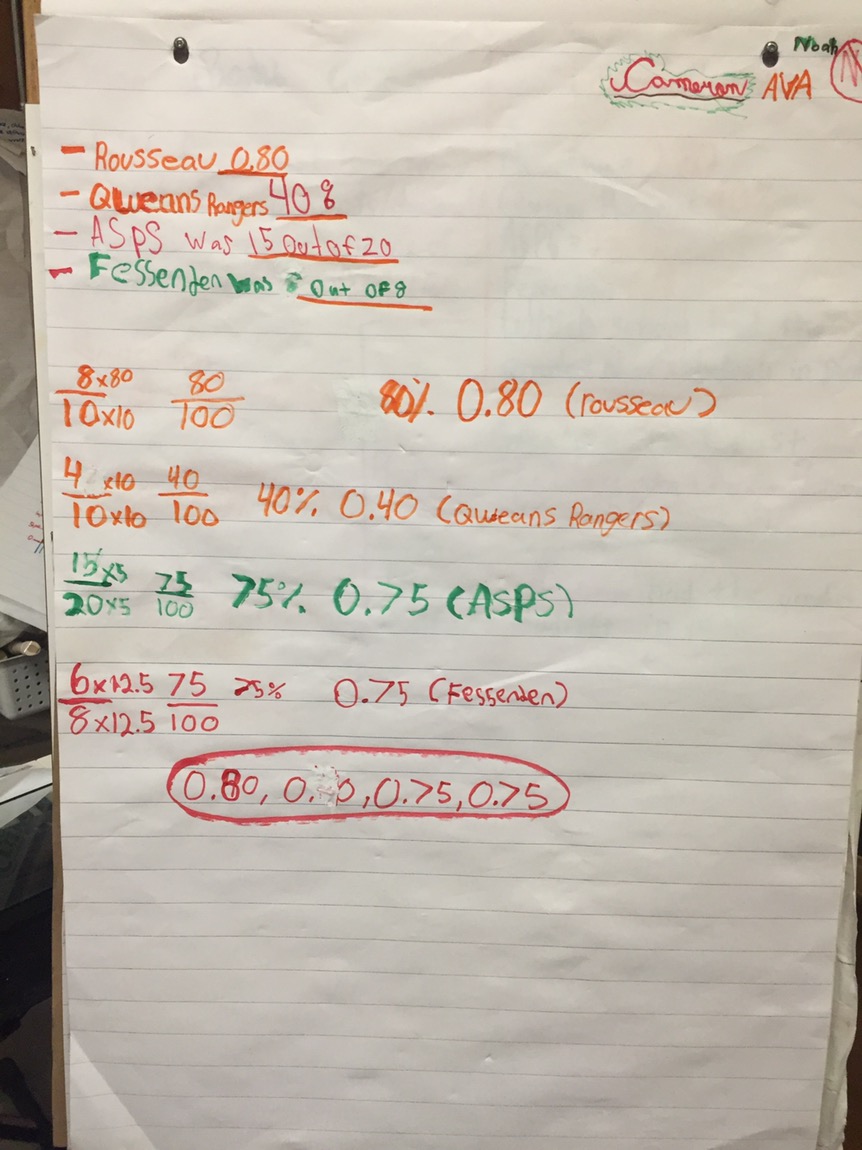 Noah
Cameron AVA
- Rousseau 0.80
- Qweans Rangers 40%
- ASPS was 15 out of 20
- Fessenden was out of 8
8x80 80
10x10 100 80% 0.80 (rousseau)
4 x10 40
10x10 100 40% 0.40 (Qweans Rangers)
15x5 75
20x5 100 75% 0.75 (ASPS)
6x12.5 75 75% 0.75 (Fessenden)
8x12.5 100
0.80, 0. 0, 0.75, 0.75